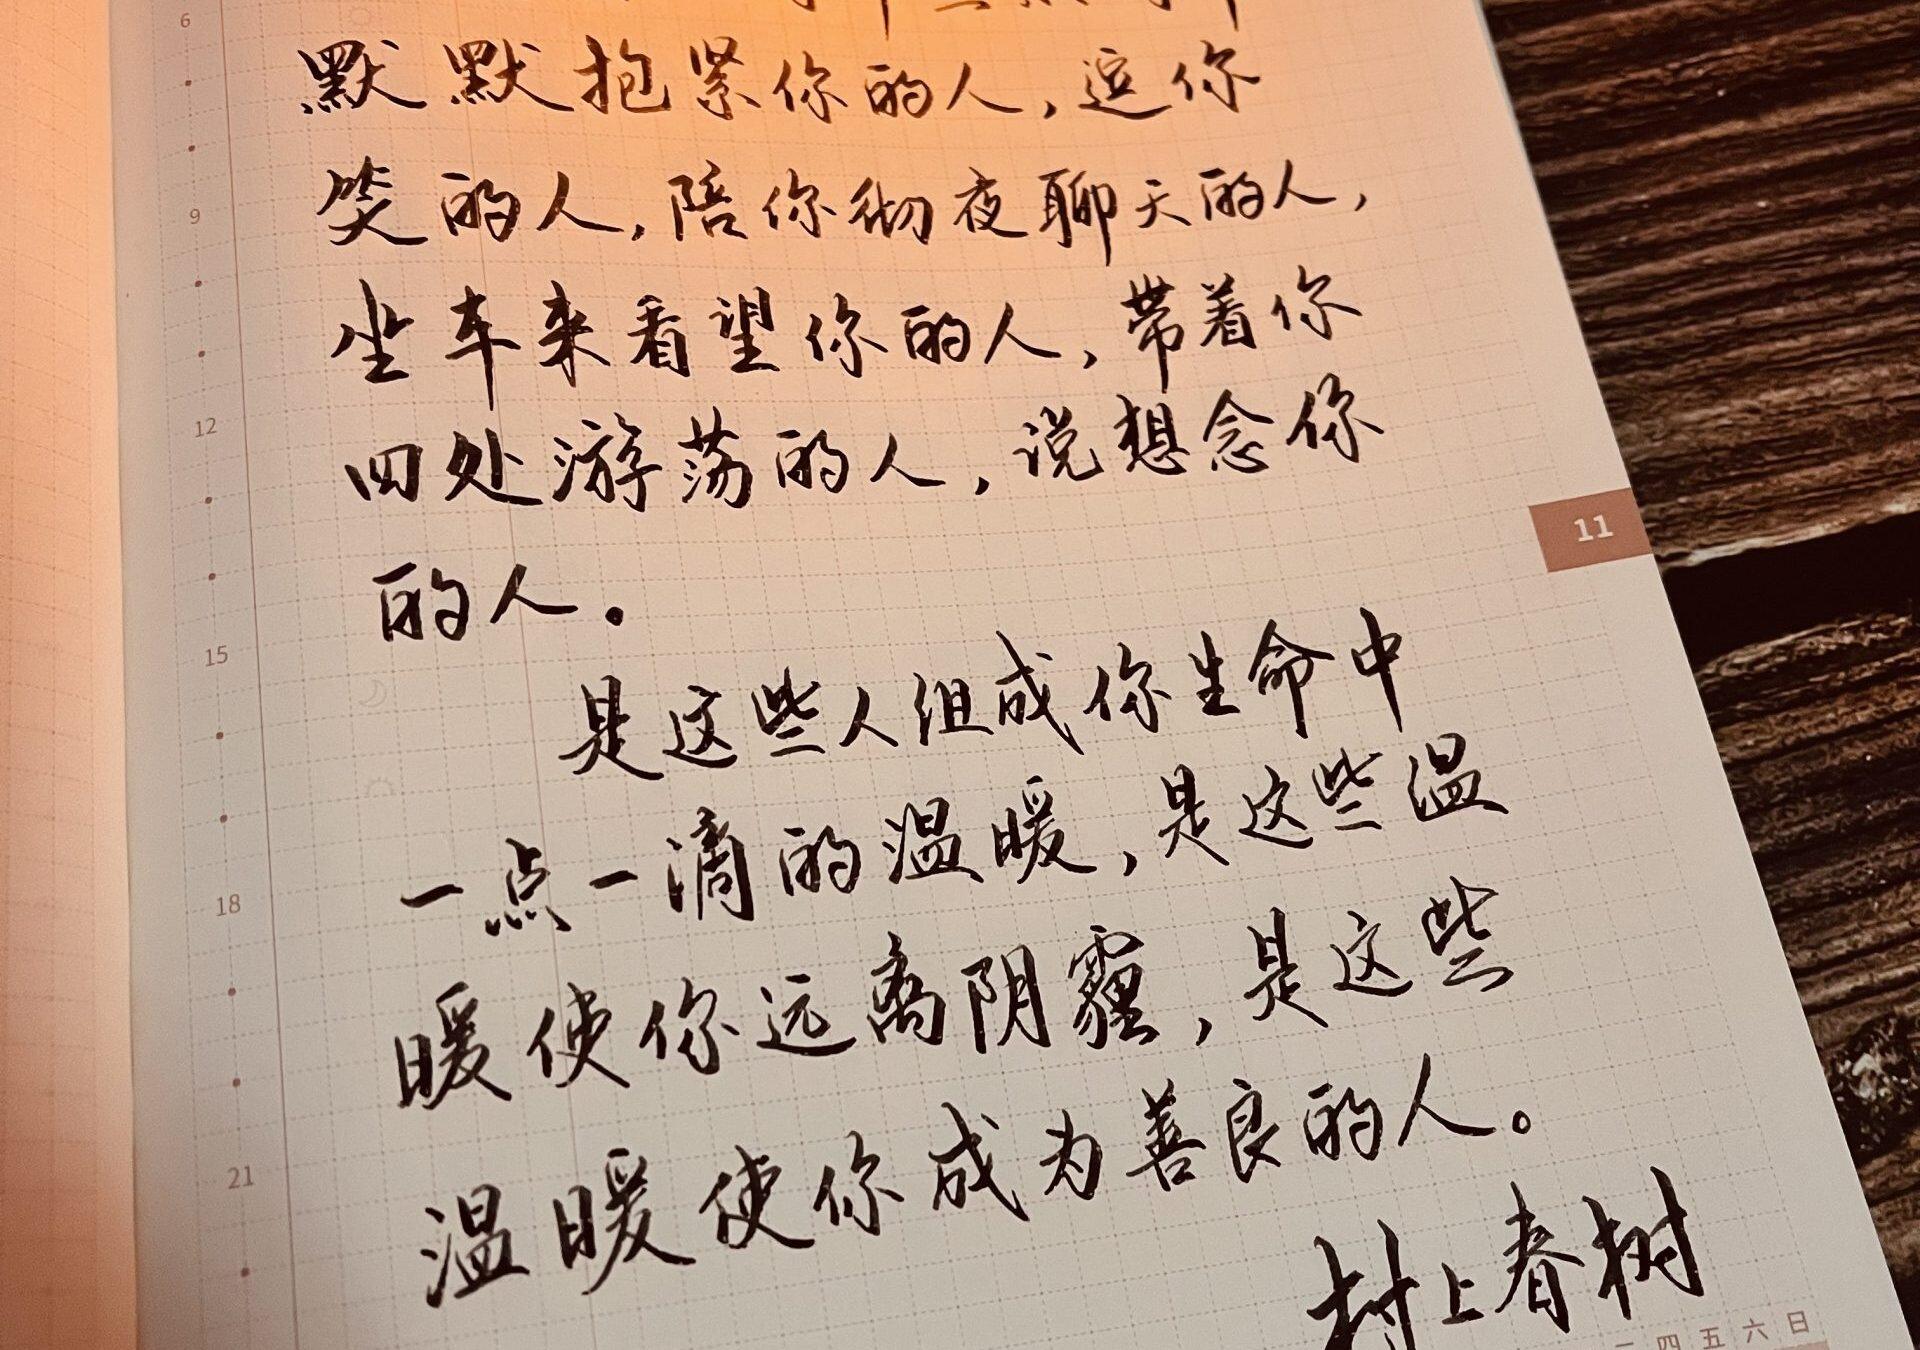 6
默默抱紧你的人,逗你
笑的人,陪你彻夜聊天的人,
9
坐车来看望你的人,带着你
12
四处游荡的人,说想念你
11
的人。
15
是这些人组成你生命中
一点一滴的温暖,是这些温
18
暖使你远离阴霾,是这些
21
温暖使你成为善良的人。
村上春树
四五六日